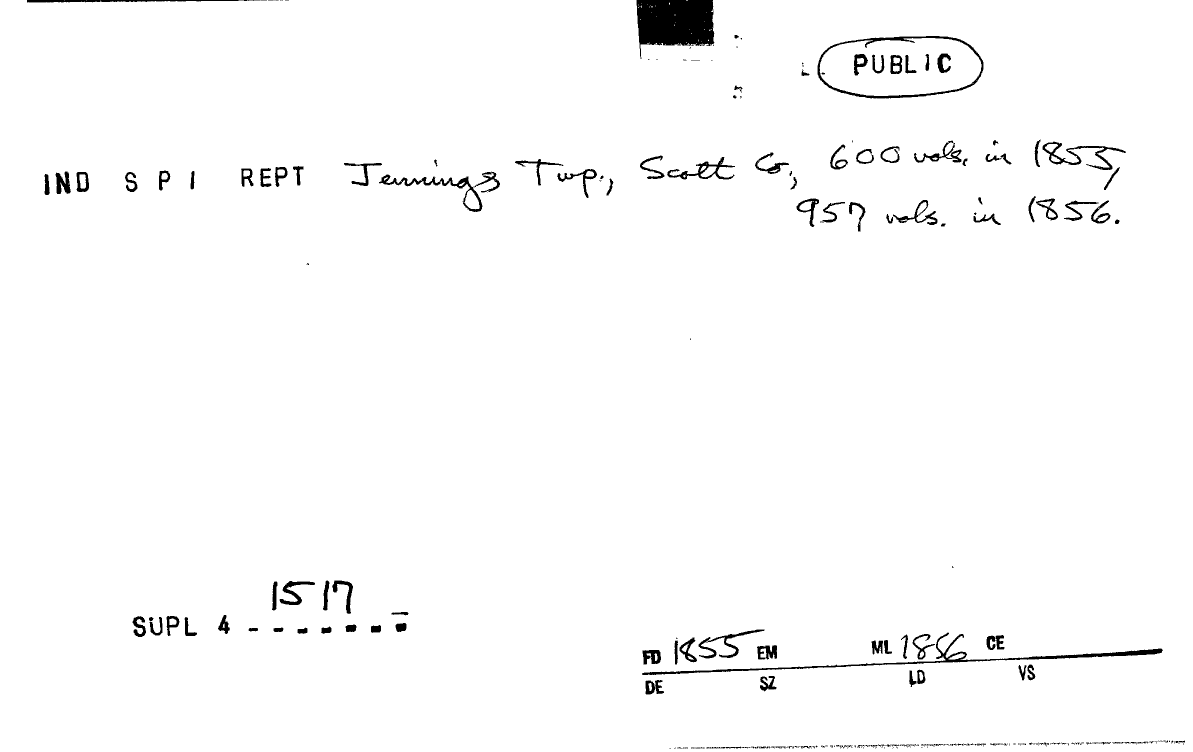 PUBLIC
IND S P I REPT Jennings Twp., Scott Co., 600 vols. in 1855,
957 vols. in 1856.
1517
SUPL 4 - - - - - - -
FD 1855 EM ML 1856 CE
DE SZ LD VS